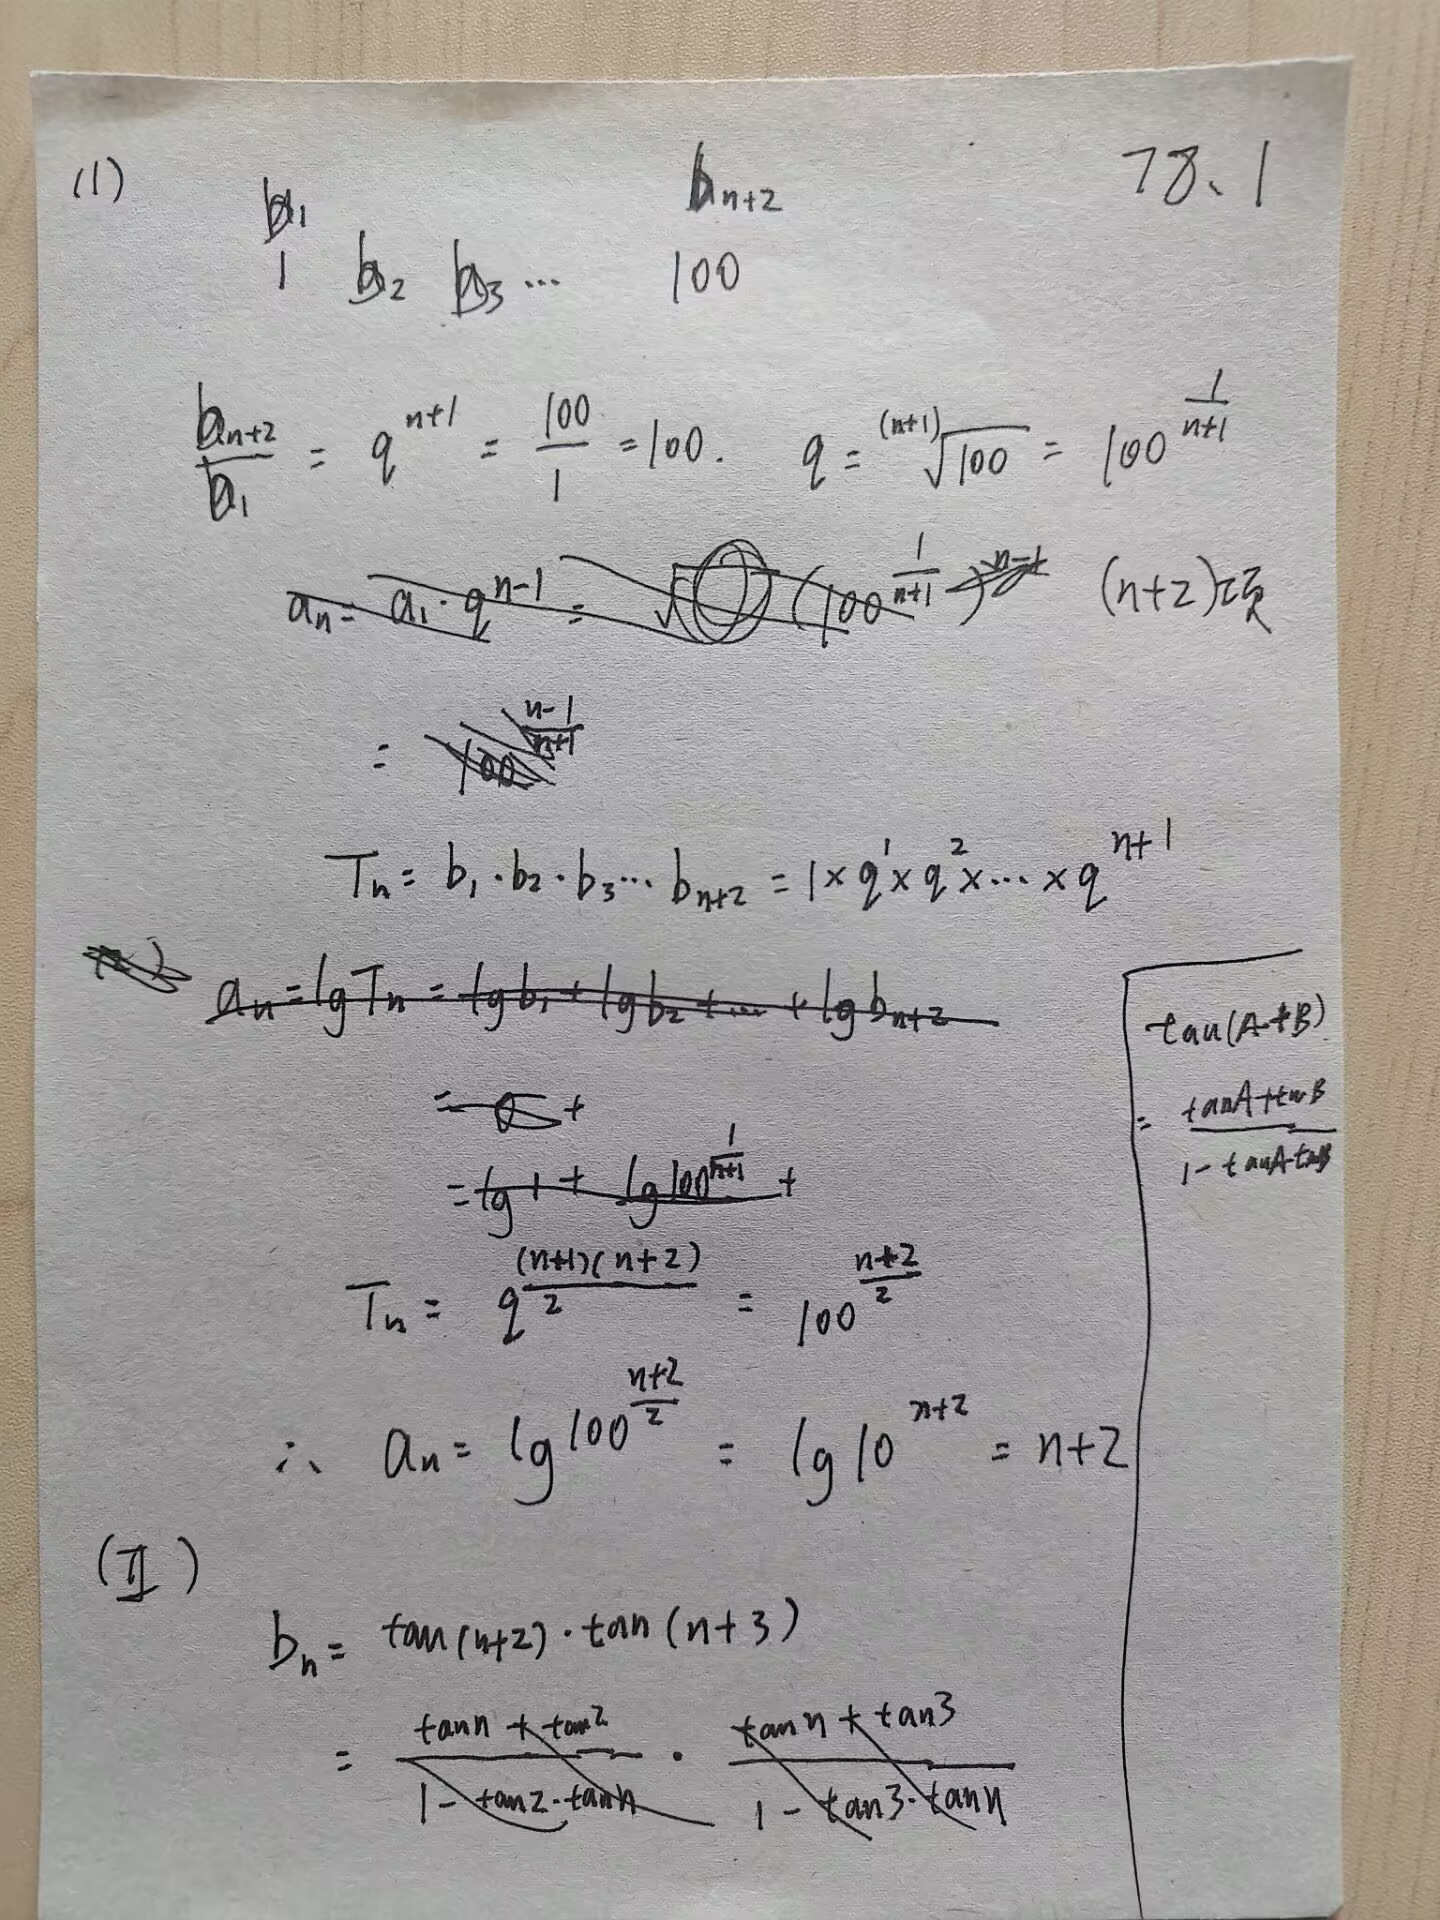 (1)
78、1
b₁ bₙ₊₂
1 b₂ b₃ ... 100
bₙ₊₂/b₁ = q^(n+1) = 100/1 = 100. q = ⁽ⁿ⁺¹⁾√100 = 100^(1/(n+1))
aₙ = a₁·q^(n-1) = (100^(1/(n+1)))^(n-1) (n+2)项
= 100^((n-1)/(n+1))
Tₙ = b₁·b₂·b₃...bₙ₊₂ = 1×q¹×q²×...×q^(n+1)
aₙ = lgTₙ = lgb₁ + lgb₂ + ... + lgbₙ₊₂
= 0 +
= lg1 + lg100^(1/(n+1)) +
Tₙ = q^((n+1)(n+2)/2) = 100^((n+2)/2)
∴ aₙ = lg100^((n+2)/2) = lg10^(n+2) = n+2
tan(A+B)
= (tanA+tanB)/(1-tanAtanB)
(Ⅱ)
bₙ = tan(n+2)·tan(n+3)
= (tann+tan2)/(1-tan2·tann) · (tann+tan3)/(1-tan3·tann)